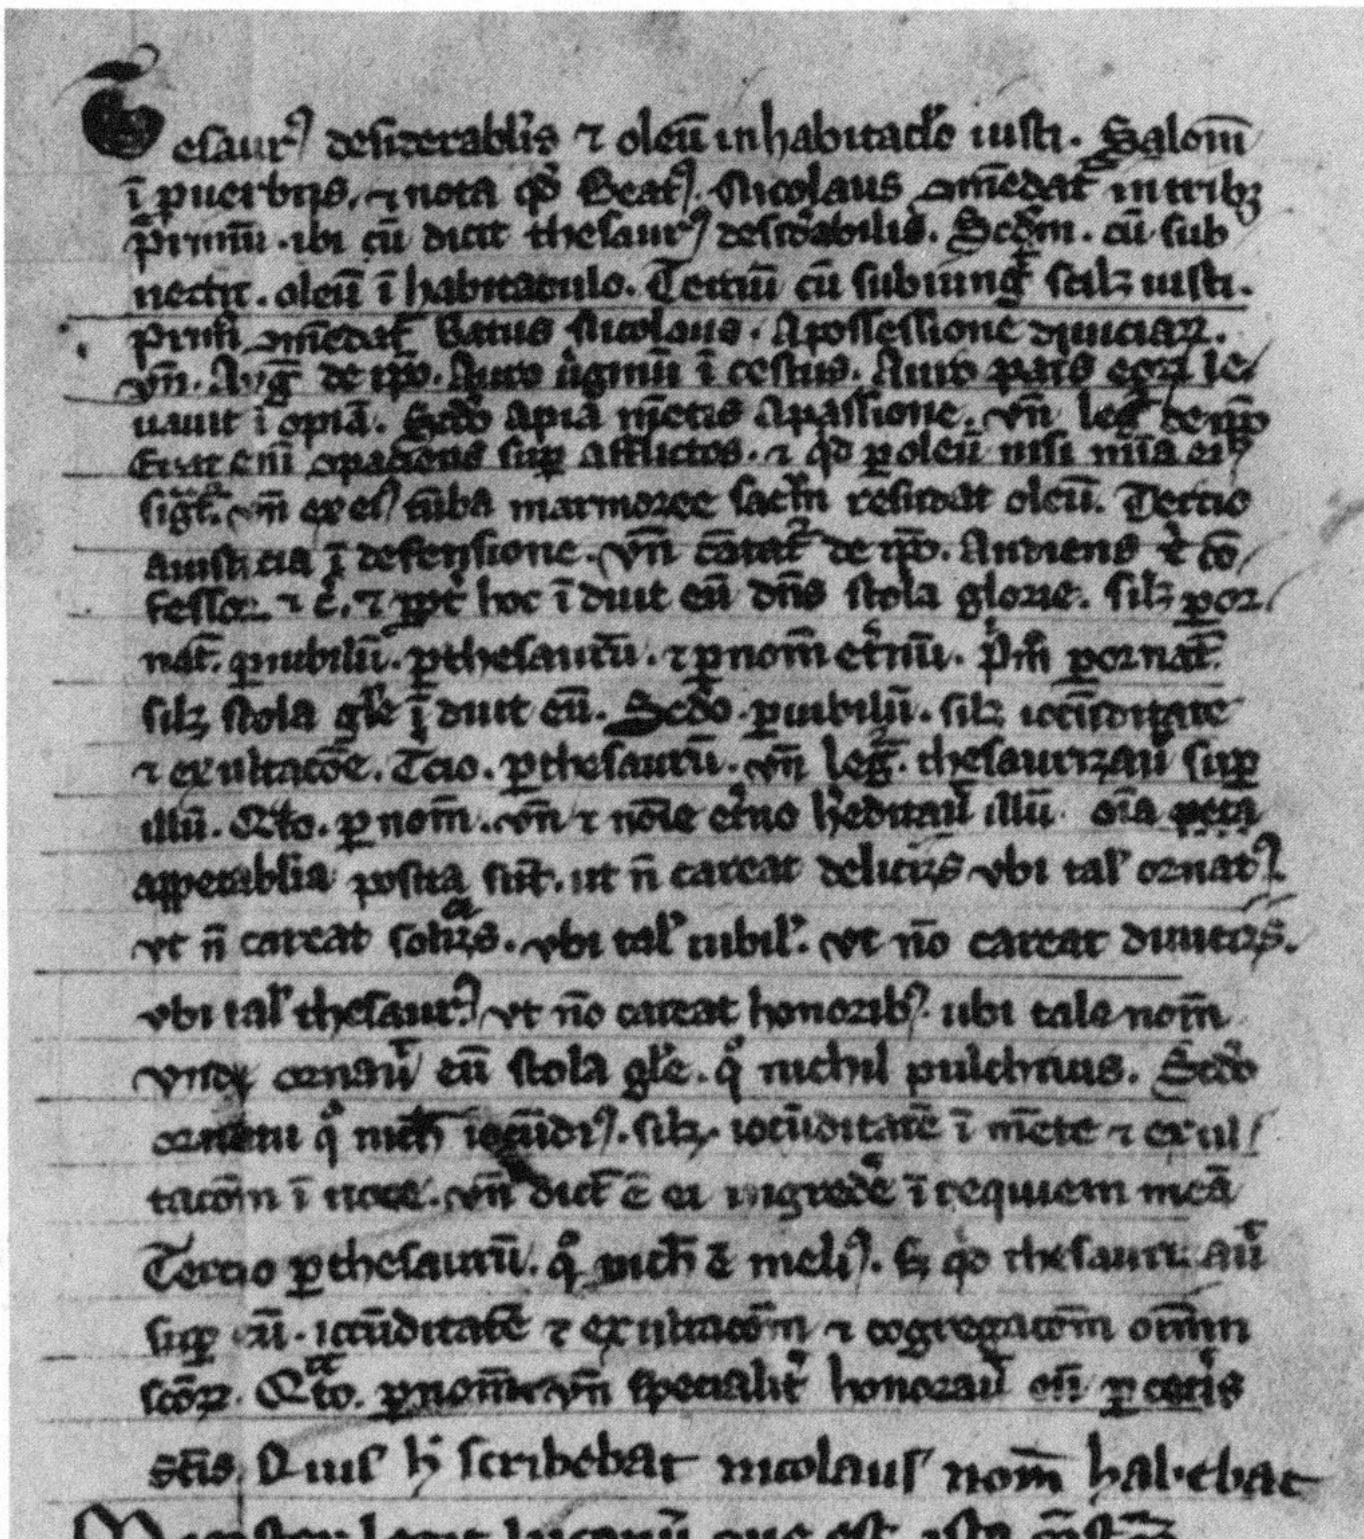 Tesaurꝰ desiderablis ⁊ oleū in habitaclo iusti. Salom̄
ī ꝓuerbiis. ⁊ nota qd̓ Beatꝰ. Nicolaus ꝯmēdat᷑ in tribꝫ
Primū. ibi cū dicit thesaurꝰ desid̓abilis. Scd̓m. cū sub
nectit. oleū ī habitaculo. Tertiū cū subiungit᷑ scilꝫ iusti.
Primū ꝯmēdat᷑ Beatus Nicolaus. A possessione diuiciaꝝ.
vn̄. Aug̅ de ip̄o. Auro ū̓ginū ī cestus. Auro pat̓s eoꝝ le
uauit īopiā. Scd̓o a pia mētis ꝯpassione. vn̄ leg̅ de ip̄o
Erat eni ꝯpaciens suꝑ afflictos. ⁊ qd̓ ꝑ oleū nisi mīa eiꝰ
sig̅t᷑. vn̄ ex eiꝰ tūba marmoree sac̓m resudat oleū. Tertio
a iusticia ī defensione. vn̄ cātat᷑ de ip̄o. Audiens x̓ cō
fessor ⁊ c̓. ⁊ ꝓpt̓ hoc īduit eū dn̄s stola glorie. silꝫ ꝑ or
nat̄. ꝑ iubilū. ꝑ thesaurū. ⁊ ꝑ nom̄ et̓nū. P̓m̄ ꝑ ornat̄.
silꝫ stola gl̓e īduit eū. Scd̓o. ꝑ iubilū. silꝫ iocūditate
⁊ exultacōe. Tcio. ꝑ thesaurū. vn̄ leg̅. thesaurizau̓ suꝑ
illū. Qͣto. ꝑ nom̄. vn̄ ⁊ nōie et̓no h̓editau̓ illū oīa peta
appetablia posita sūt. ut n̄ careat deliciis vbi tal̓ ornatꝰ.
vt n̄ careat solaciis. vbi tal̓ iubil̓. vt nō careat diuiciis.
vbi tal̓ thesaurꝰ. vt nō careat honoribꝰ. ubi tale nom̄
vndꝫ ornau̓ eū stola gl̓e. qͦ nichil pulchrius. Scd̓o
ornatu qͦ nich̄ iocūdiꝰ. silꝫ. iocūditatē ī mēte ⁊ exul
tacōm ī uoce. vn̄ dict̄ ē ei ingred̓e ī requiem meā
Tertio ꝑ thesaurū. qͦ nich̄ ē meliꝰ. sꝫ qd̓ thesaurizau̓
suꝑ eū. iocūditatē ⁊ exultacōm ⁊ ꝯgregacōm om̄im
scōꝝ. Qͣto. ꝑ nom̄. vn̄ specialit̓ honorau̓ eū p̱ cet̓is
sc̄is. Quis h̓ scribebat nicolaus nom̄ habebat